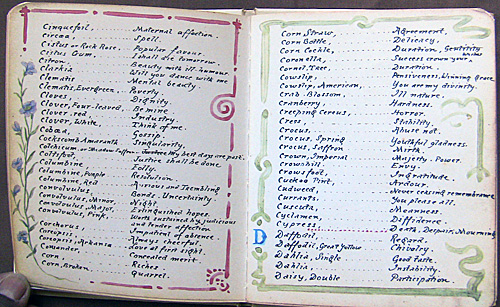 Cinquefoil, ... Maternal affection.
Circea, ... Spell.
Cistus or Rock Rose, Popular favour.
Cistus Gum, I shall die tomorrow.
Citron, Beauty with ill-humour.
Clarkia Will you dance with me
Clematis Mental beauty
Clematis, Evergreen, Poverty.
Cloves Dignity
Clover, Four-leaved, Be mine
Clover, red Industry.
Clover, White, Think of me.
Cobœa, Gossip.
Cockscomb Amaranth Singularity.
Colchicum, or Meadow Saffron My best days are past.
Coltsfoot, Justice shall be done.
Columbine Folly.
Columbine, Purple Resolution.
Columbine, Red Anxious and Trembling
Convolvulus Bonds, Uncertainty
Convolvulus, Minor Night
Convolvulus, Major, Extinguished hopes.
Convolvulus, Pink, Worth sustained by judicious
and tender affection
Corchorus Impatient of absence.
Coreopsis Always cheerful
Coreopsis, Arkansa Love at first sight.
Coriander, Concealed merit.
Corn, Riches
Corn, Broken Quarrel.
Corn Straw, Agreement.
Corn Bottle, Delicacy.
Corn Cockle, Duration, Gentility
Coronella Success crown your wishes
Cornel Tree, Duration.
Cowslip, Pensiveness, Winning Grace.
Cowslip, American, You are my divinity.
Crab-Blossom, Ill nature.
Cranberry Hardness.
Creeping Cereus, Horror.
Cress, Stability.
Crocus, Abuse not.
Crocus, Spring Youthful gladness.
Crocus, Saffron Mirth.
Crown, Imperial Majesty. Power.
Crowsbill Envy.
Crowsfoot, Ingratitude.
Cuckoo Pint, Ardour.
Cudweed, Never ceasing remembrance
Currants, You please all.
Cuscuta, Meanness.
Cyclamen, Diffidence.
Cypress Death, Despair, Mourning
D Daffodil, Regard.
Daffodil, Great Yellow Chivalry.
Dahlia, Single Good taste
Dahlia, Instability.
Daisy, Double Participation.